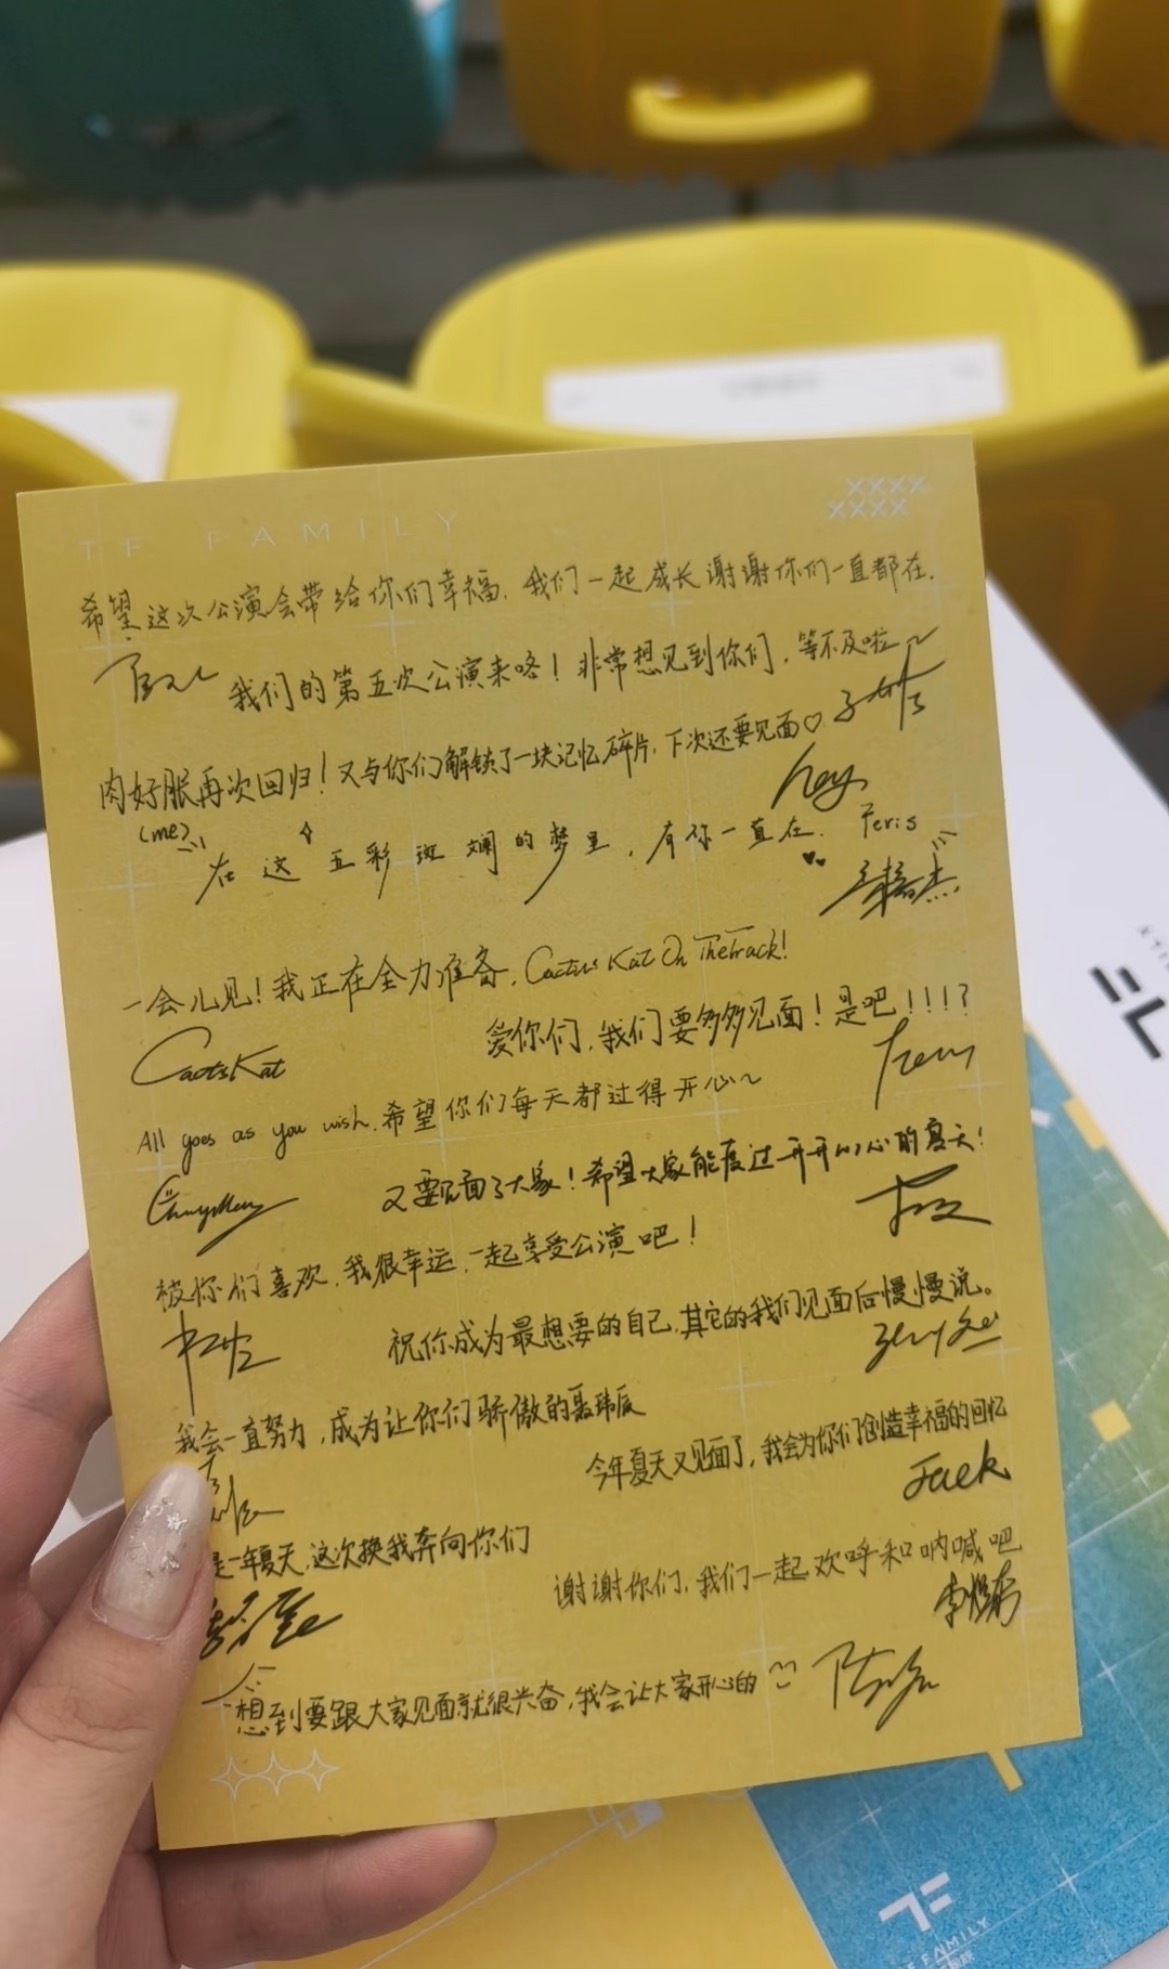 TF FAMILY
XXXX
XXXX
希望这次公演会带给你们幸福. 我们一起成长谢谢你们一直都在.
我们的第五次公演来咯！非常想见到你们，等不及啦～
肉好服再次回归！又与你们解锁了一块记忆碎片，下次还要见面♡
(me)
hey
在这五彩斑斓的梦里，有你一直在. Feris
一会儿见！我正在全力准备，Cactus Kat On The Track!
CactsKat
爱你们，我们要多多见面！是吧！！！？
All goes as you wish. 希望你们每天都过得开心～
又要见面了大家！希望大家能度过开开心心的夏天！
被你们喜欢，我很幸运，一起享受公演吧！
祝你成为最想要的自己，其它的我们见面后慢慢说。
我会一直努力，成为让你们骄傲的聂玮辰
今年夏天又见面了，我会为你们创造幸福的回忆
Jack
是一年夏天，这次换我奔向你们
谢谢你们，我们一起欢呼和呐喊吧
一想到要跟大家见面就很兴奋，我会让大家开心的
TF FAMILY